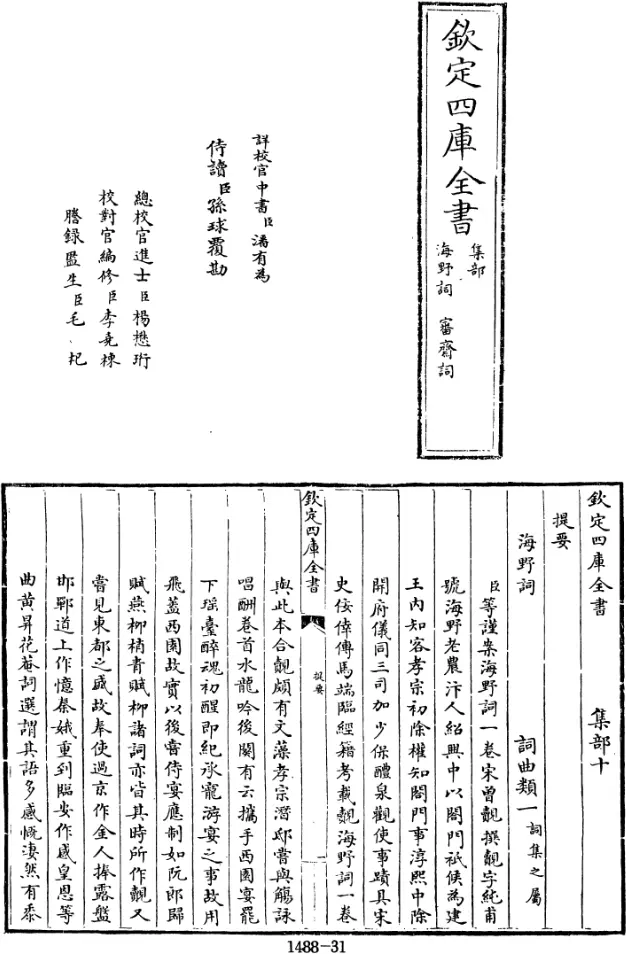 欽定四庫全書
集部
海野詞 審齋詞
詳校官中書臣潘有為
侍讀臣孫球覆勘
總校官進士臣楊懋珩
校對官編修臣李堯棟
謄録監生臣毛杞
欽定四庫全書 集部十
提要
海野詞 詞曲類一詞集之屬
臣等謹案海野詞一卷宋曾覿撰覿字純甫
號海野老農汴人紹興中以閤門祇候為建
王内知客孝宗初除權知閤門事淳熙中除
開府儀同三司加少保醴泉觀使事蹟具宋
史佞倖傳馬端臨經籍考載覿海野詞一卷
欽定四庫全書 提要
與此本合覿頗有文藻孝宗潛邸嘗與觴詠
唱酬卷首水龍吟後闋有云攜手西園宴罷
下瑶臺醉魂初醒即紀承寵游宴之事故用
飛蓋西園故實以後嘗侍宴應制如阮郎歸
賦燕柳梢青賦柳諸詞亦皆其時所作覿又
嘗見東都之盛故奉使過京作金人捧露盤
邯鄲道上作憶秦娥重到臨安作感皇恩等
曲黄昇花菴詞選謂其語多感慨淒然有黍
1488-31